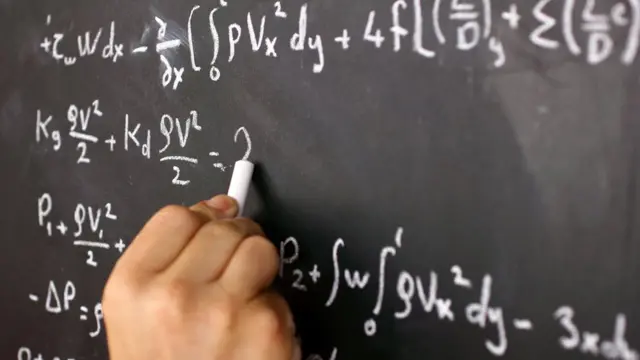 + τ_w W dx − ∂/∂x (∫₀¹ ρV_x² dy + 4f[(L/D)_y + Σ(L/D
K_g ρV²/2 + K_d ρV²/2 =
P₁ + ρV₁²/2 + P₂ + ∫w∫₀¹ ρV_x² dy − 3x d
-ΔP = ρ